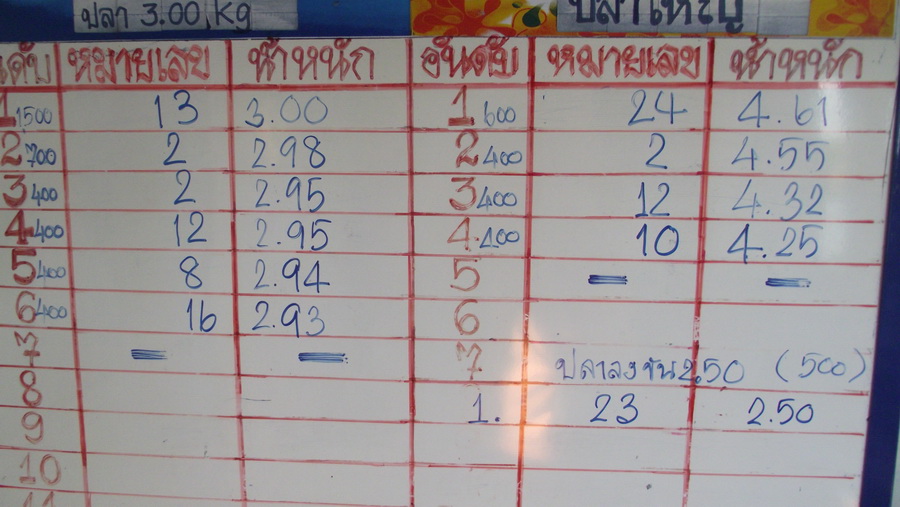 ปลา 3.00 Kg ปลาใหญ่
อันดับ หมายเลข น้ำหนัก อันดับ หมายเลข น้ำหนัก
1 1500 13 3.00 1 600 24 4.61
2 700 2 2.98 2 400 2 4.55
3 400 2 2.95 3 400 12 4.32
4 400 12 2.95 4 400 10 4.25
5 400 8 2.94 5 — —
6 400 16 2.93 6
7 — — 7 ปลาลงขัน 2.50 (500)
8 1. 23 2.50
9
10
11